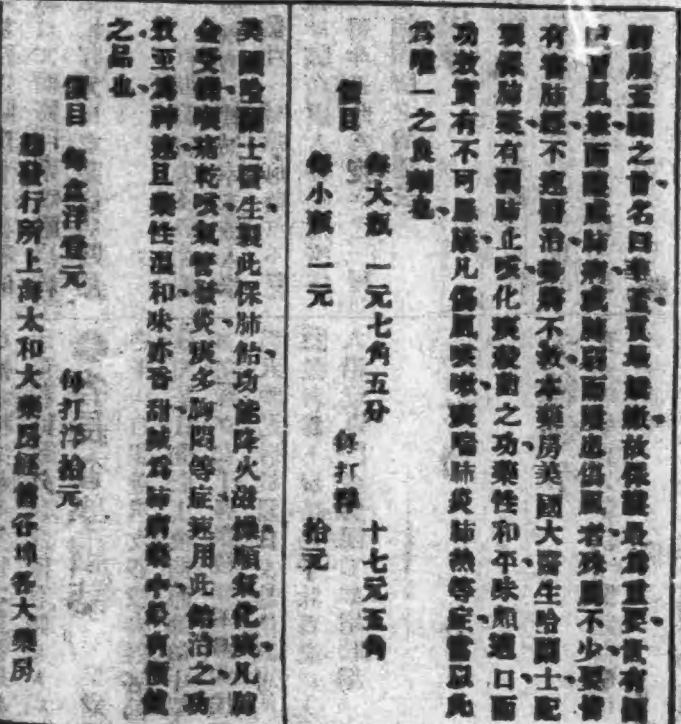 肺居五臟之首名曰華蓋質最嬌嫩故保護最爲重要世有
風寒而釀成肺病或肺癆而罹患傷風者殊屬不少要皆
有害肺經不速醫治勢將不救本藥房英國大醫生哈蘭士配
製保肺藥有潤肺止咳化痰殺菌之功藥性和平味頗適口而
功效實有不可思議凡傷風咳嗽痰喘肺炎肺熱等症當以此
爲唯一之良劑也
價目 每大瓶 一元七角五分 每打洋 十七元五角
每小瓶 一元 拾元
英國哈蘭士醫生製此保肺飴功能降火滋燥順氣化痰凡肺
金受傷喉痛乾咳氣管發炎痰多胸悶等症速用此飴治之功
效至爲神速且藥性溫和味亦香甜誠爲肺病藥中最有價值
之品也
價目 每盒洋壹元 每打洋拾元
總發行所上海太和大藥房經售各埠各大藥房